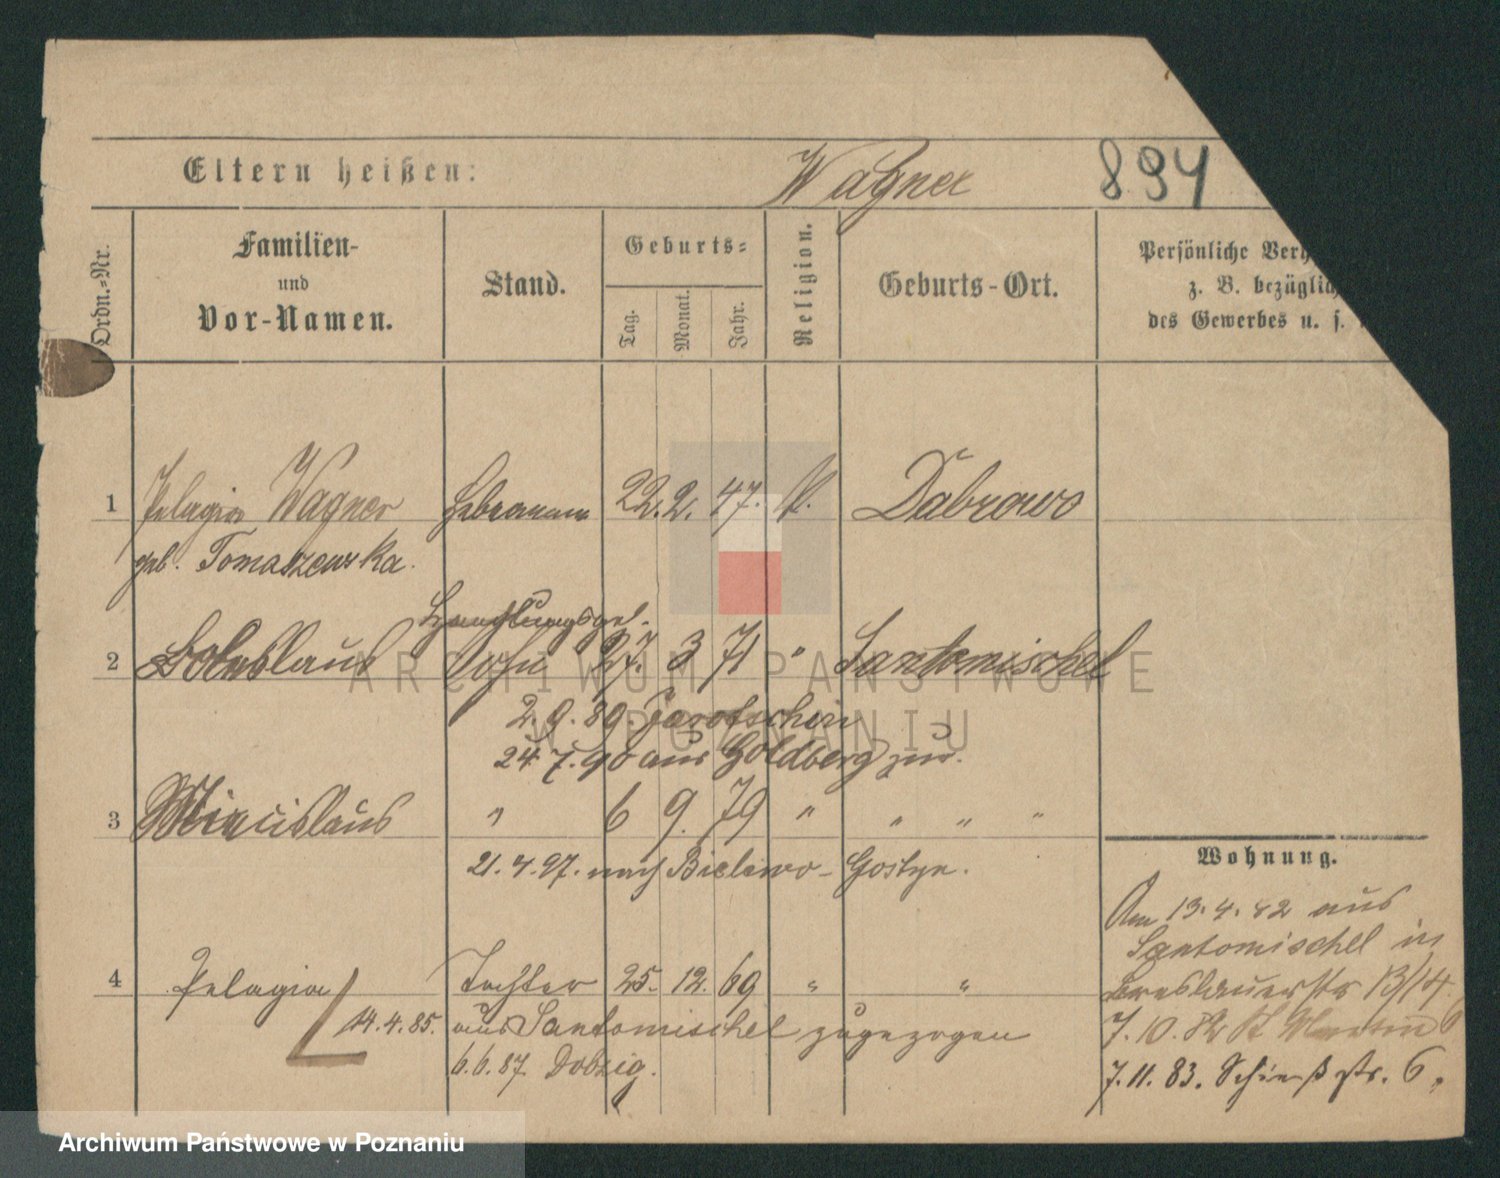 Eltern heißen: Wagner 894
Ordn.-Nr.
Familien-
und
Vor-Namen.
Stand.
Geburts-
Tag. Monat. Jahr.
Religion.
Geburts-Ort.
Persönliche
z. B.
des Gewerbes u. s.
1 Pelagia Wagner Hebamme 22. 2. 47. K. Dabrowo
geb. Tomaszewska.
Handlungsgeh.
2 Boleslaus Sohn 27. 3 71 " Santomischel
2. 9. 89. Jarotschin
24. 7. 90 aus Goldberg zur.
3 " 6 9. 79 " " " "
21. 4. 97. nach Bielewo - Gostyn.
4 Pelagia Tochter 25. 12. 69 " "
14. 4. 85. aus Santomischel zugezogen
6. 6. 87. Dobzig.
Wohnung.
Am 13. 4. 82 aus
Santomischel in
Breslauerstr 13/14.
7. 10. 82 St Martin 6
7. 11. 83. Schießstr. 6.
ARCHIWUM PAŃSTWOWE
W POZNANIU
Archiwum Państwowe w Poznaniu